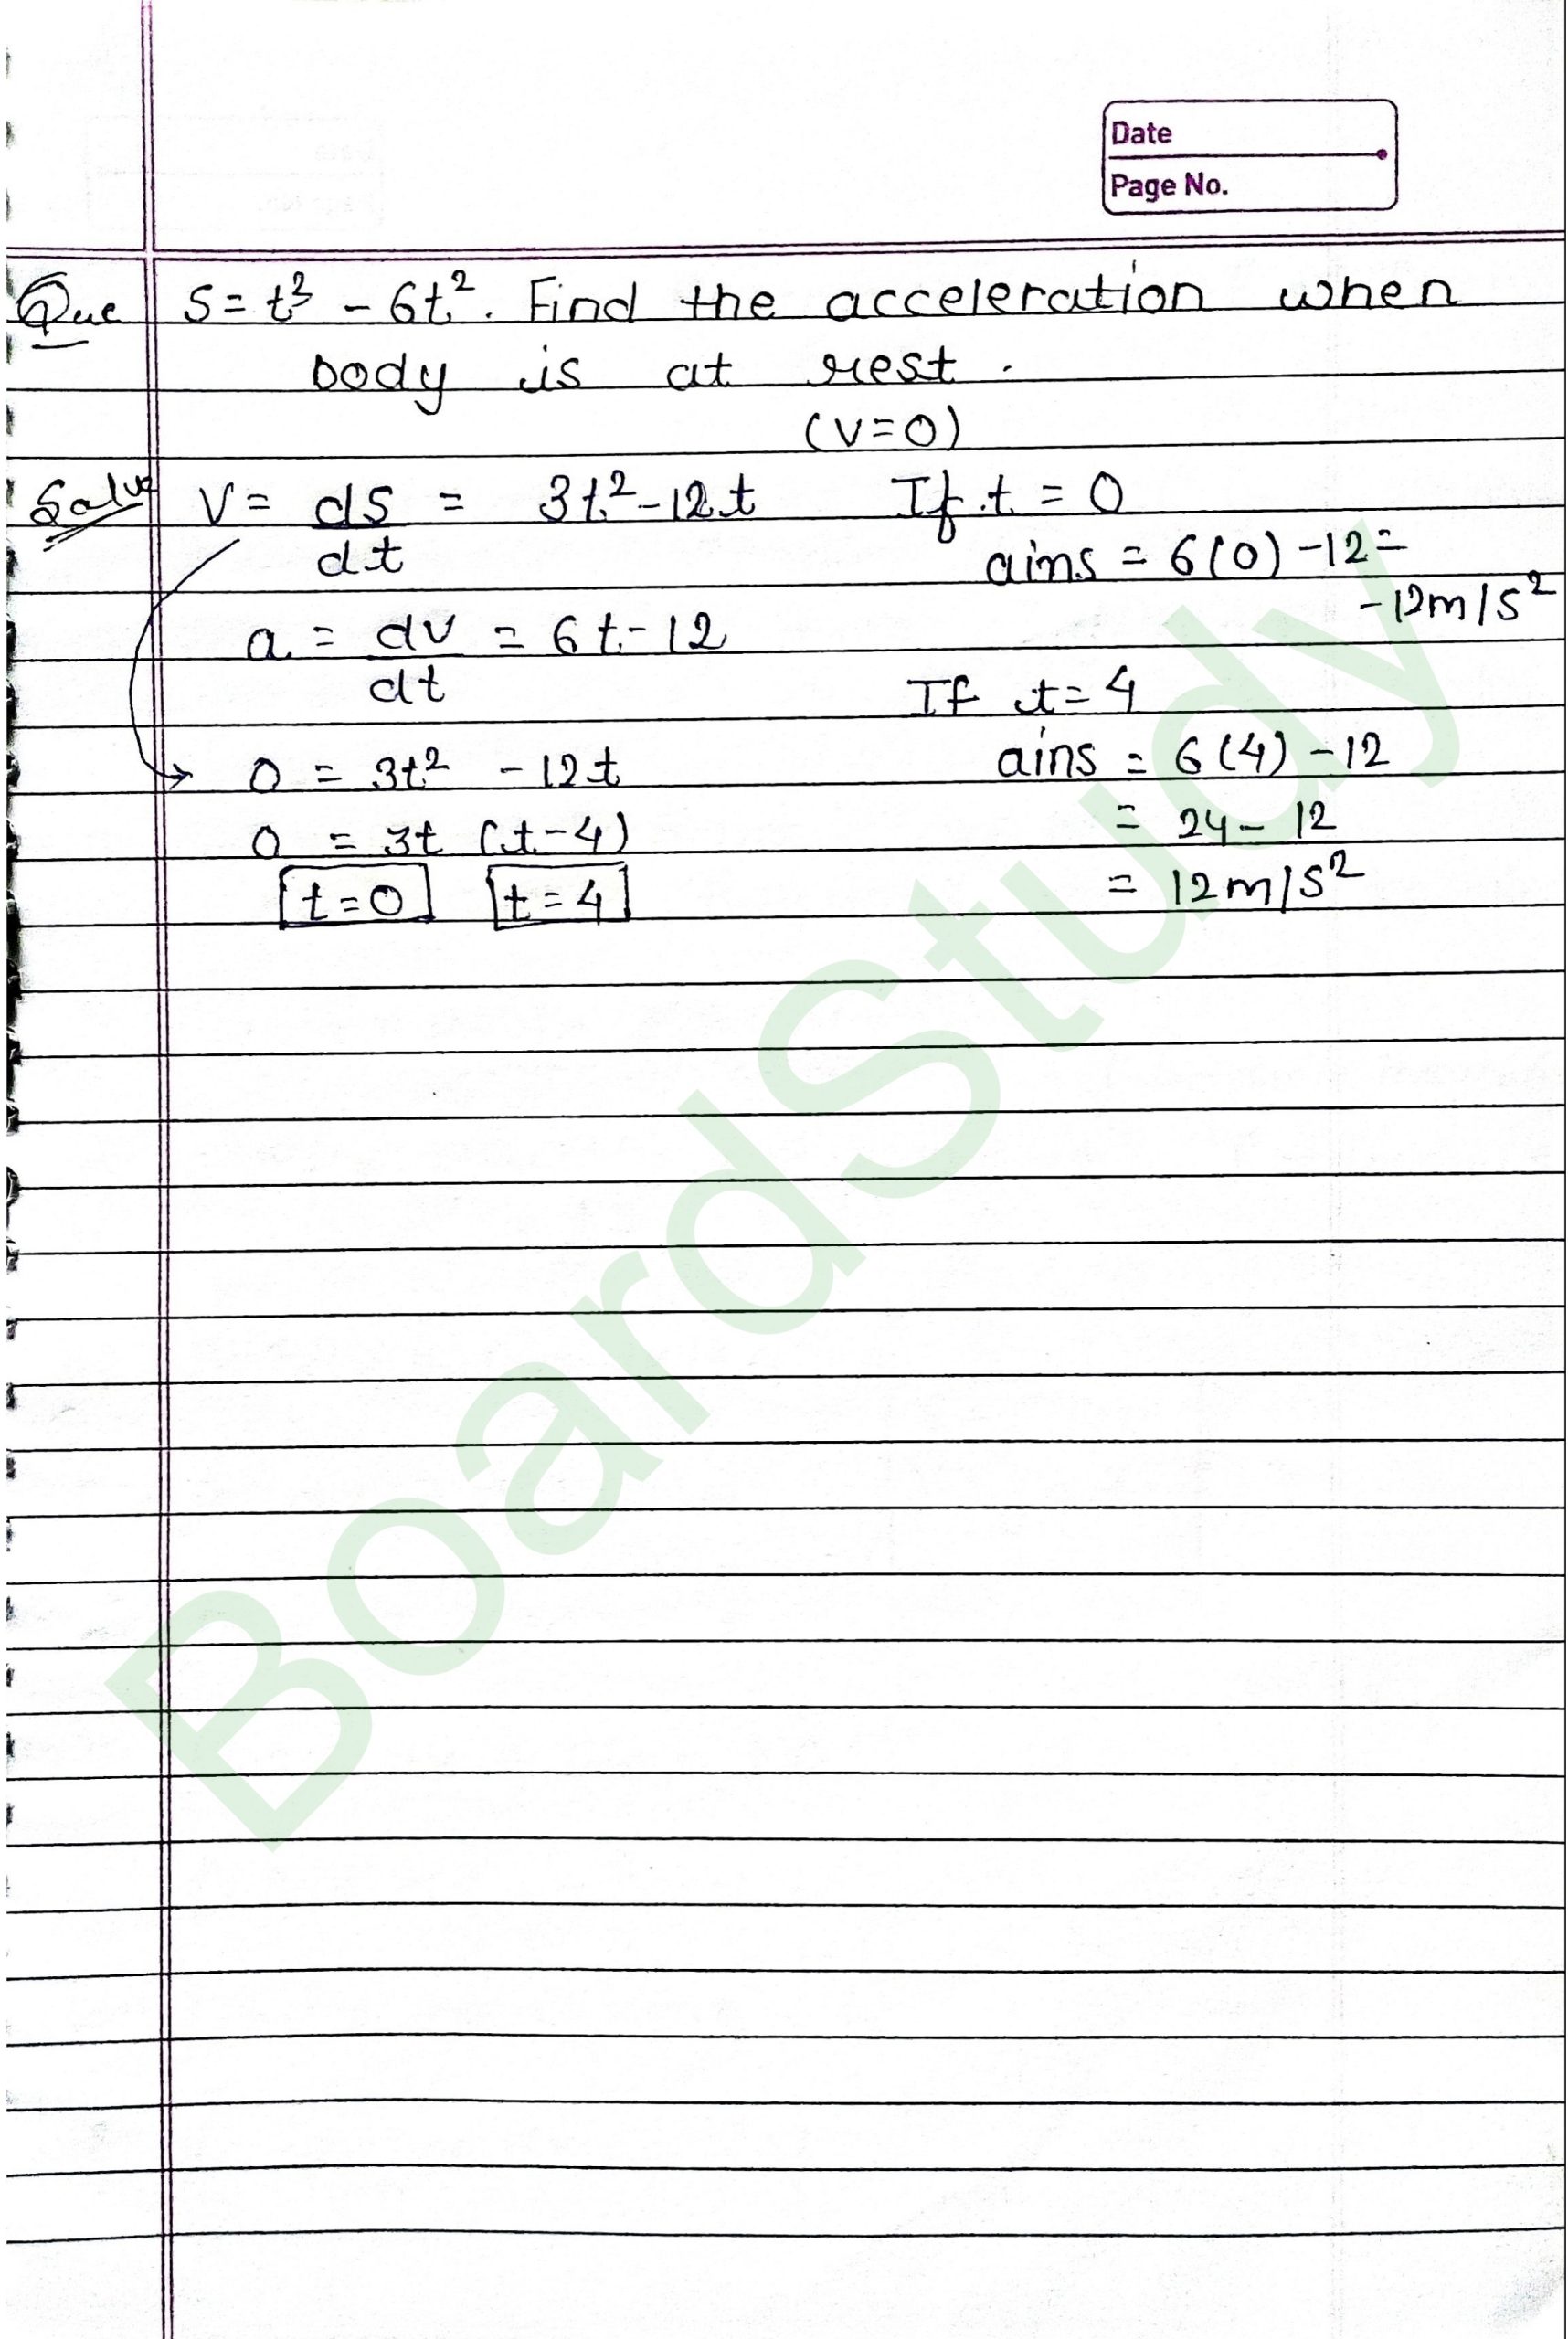 Date
Page No.
Que S = t³ - 6t². Find the acceleration when
body is at rest.
(V=0)
Solve V = dS/dt = 3t² - 12t
a = dv/dt = 6t - 12
0 = 3t² - 12t
0 = 3t (t-4)
t=0 t=4
If t = 0
ains = 6(0) - 12 =
-12m/s²
If t=4
ains = 6(4) - 12
= 24 - 12
= 12m/s²
BoardStudy